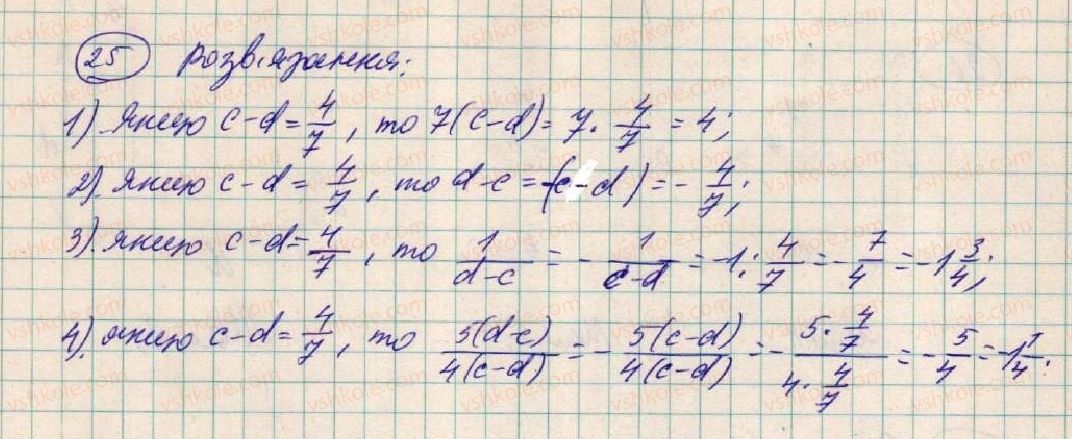 25 Розв'язання:
1) Якщо c-d=4/7, то 7(c-d)=7·4/7=4;
2) Якщо c-d=4/7, то d-c=-(c-d)=-4/7;
3) Якщо c-d=4/7, то 1/(d-c)=-1/(c-d)=-1:4/7=-7/4=-1 3/4;
4) Якщо c-d=4/7, то 5(d-c)/4(c-d)=-5(c-d)/4(c-d)=-(5·4/7)/(4·4/7)=-5/4=-1 1/4.